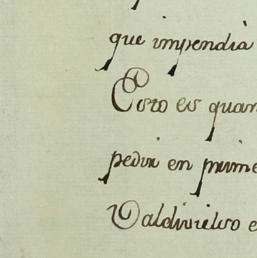 que impendia
Esto es quan
pedir en prime
Valdivielso e